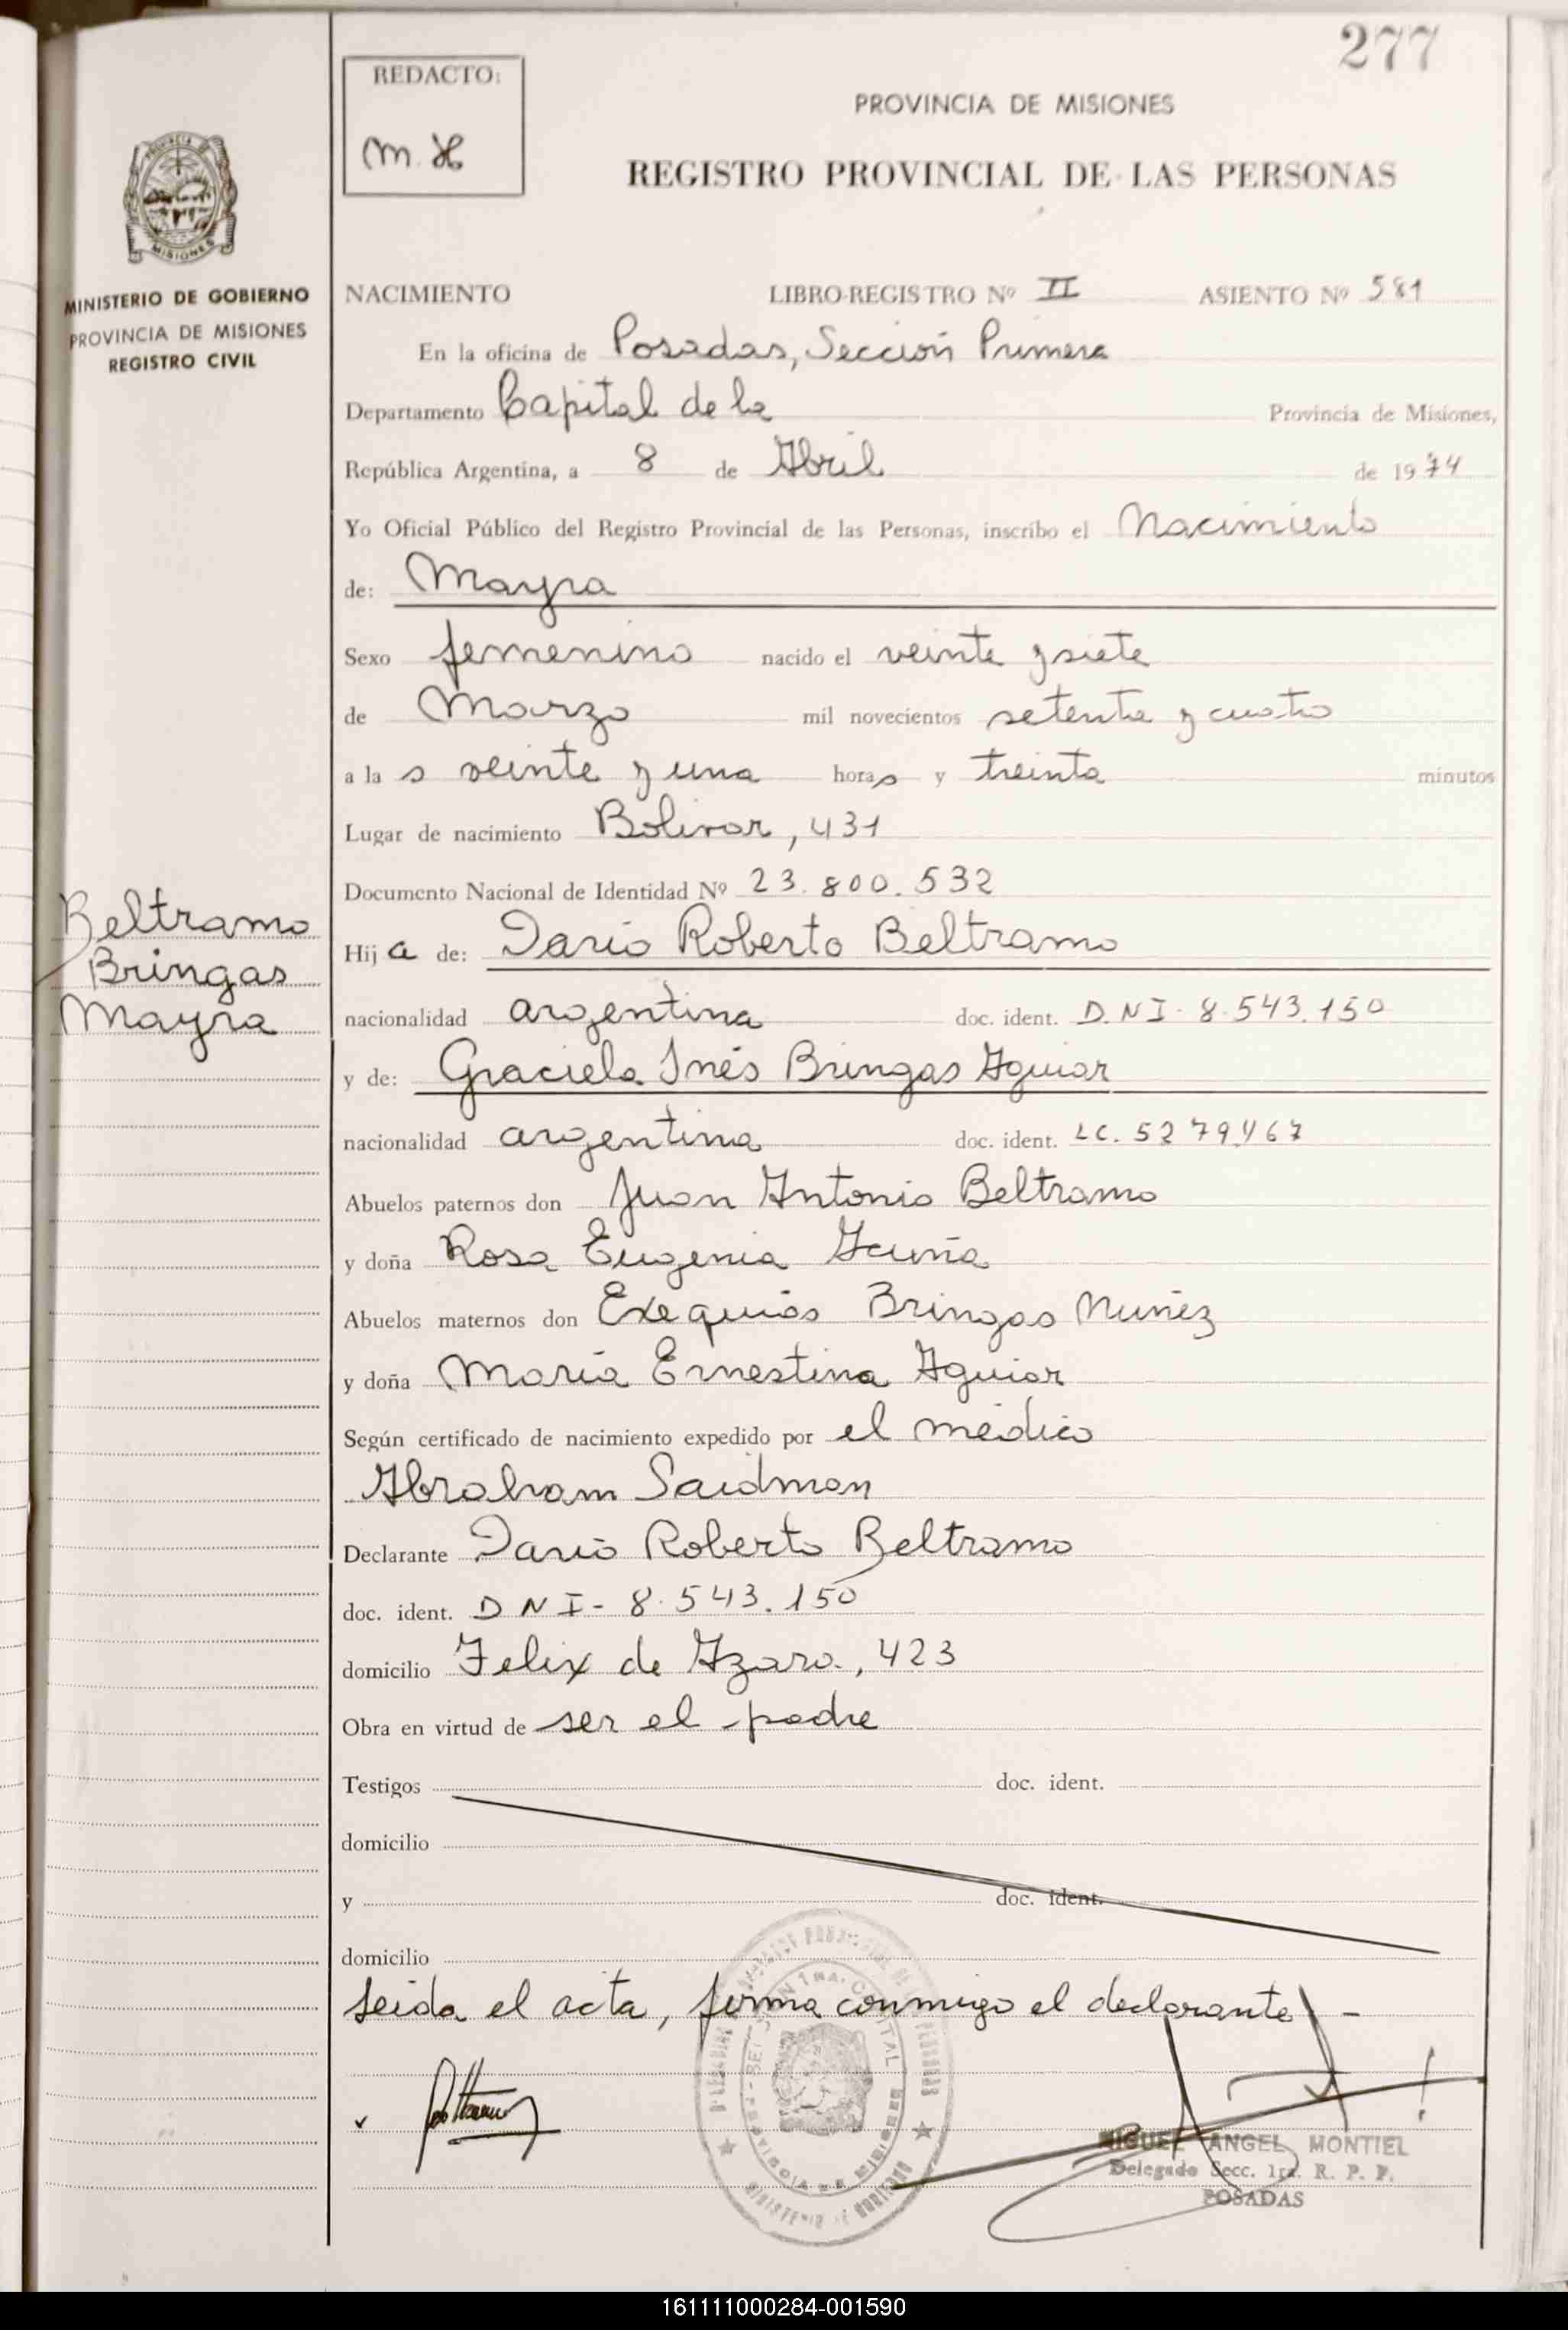 277
REDACTO:
M. H
PROVINCIA DE MISIONES
REGISTRO PROVINCIAL DE LAS PERSONAS
MISIONES
MINISTERIO DE GOBIERNO
PROVINCIA DE MISIONES
REGISTRO CIVIL
NACIMIENTO LIBRO-REGISTRO Nº II ASIENTO Nº 581
En la oficina de Posadas, Sección Primera
Departamento Capital de la Provincia de Misiones,
República Argentina, a 8 de Abril de 1974
Yo Oficial Público del Registro Provincial de las Personas, inscribo el Nacimiento
de: Mayra
Sexo femenino nacido el veinte y siete
de Marzo mil novecientos setenta y cuatro
a la s veinte y una horas y treinta minutos
Lugar de nacimiento Bolivar, 431
Documento Nacional de Identidad Nº 23.800.532
Beltramo
Bringas
Mayra
Hija de: Dario Roberto Beltramo
nacionalidad argentina doc. ident. D.N.I. 8.543.150
y de: Graciela Inés Bringas Aguiar
nacionalidad argentina doc. ident. LC. 5279467
Abuelos paternos don Juan Antonio Beltramo
y doña Rosa Eugenia Acuña
Abuelos maternos don Exequias Bringas Nuñez
y doña María Ernestina Aguiar
Según certificado de nacimiento expedido por el médico
Abraham Saidman
Declarante Dario Roberto Beltramo
doc. ident. DNI- 8.543.150
domicilio Felix de Azara, 423
Obra en virtud de ser el padre
Testigos doc. ident.
domicilio
y doc. ident.
domicilio
Leida el acta, firma conmigo el declarante -
MIGUEL ANGEL MONTIEL
Delegado Secc. 1ra. R. P. P.
POSADAS
161111000284-001590